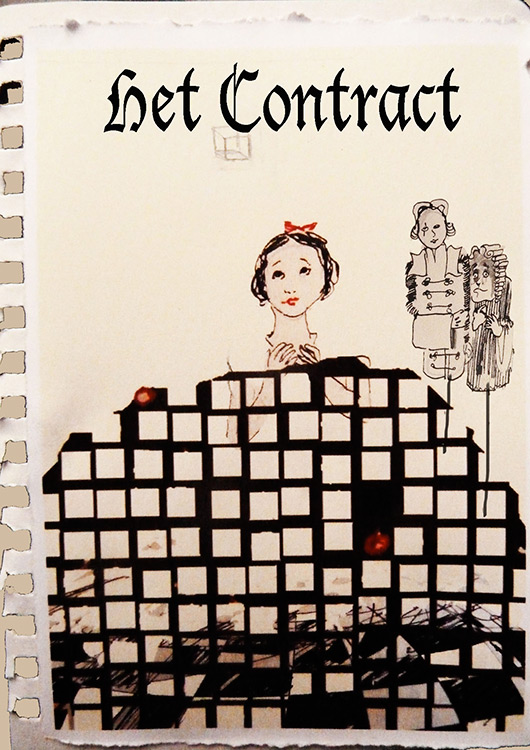 Het Contract